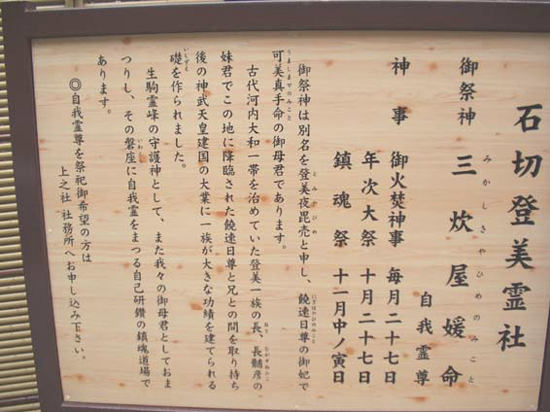 石切登美霊社
御祭神 三炊屋媛命
みかしきやひめのみこと
自我霊尊
神事 御火焚神事 毎月二十七日
年次大祭 十月二十七日
鎮魂祭 十一月中ノ寅日
御祭神は別名を登美夜毘売と申し、饒速日尊の御妃で
とみやひめ
にぎはやひのみこと
可美真手命の御母君であります。
うましまでのみこと
古代河内大和一帯を治めていた登美一族の長、長髄彦の
おさ
ながすねひこ
妹君でこの地に降臨された饒速日尊と兄との間を取り持ち
後の神武天皇建国の大業に一族が大きな功績を建てられる
礎を作られました。
いしずえ
生駒霊峰の守護神として、また我々の御母君としておま
つりし、その磐座に自我霊をまつる自己研鑽の鎮魂道場で
いわくら
あります。
◎自我霊尊を祭祀御希望の方は
上之社 社務所へお申し込み下さい。